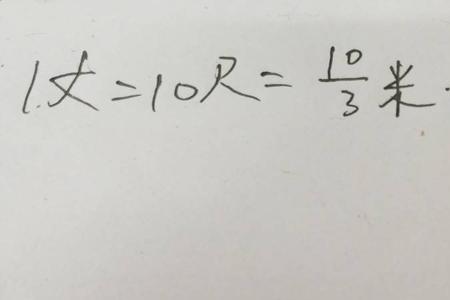 1丈=10尺=10/3米.